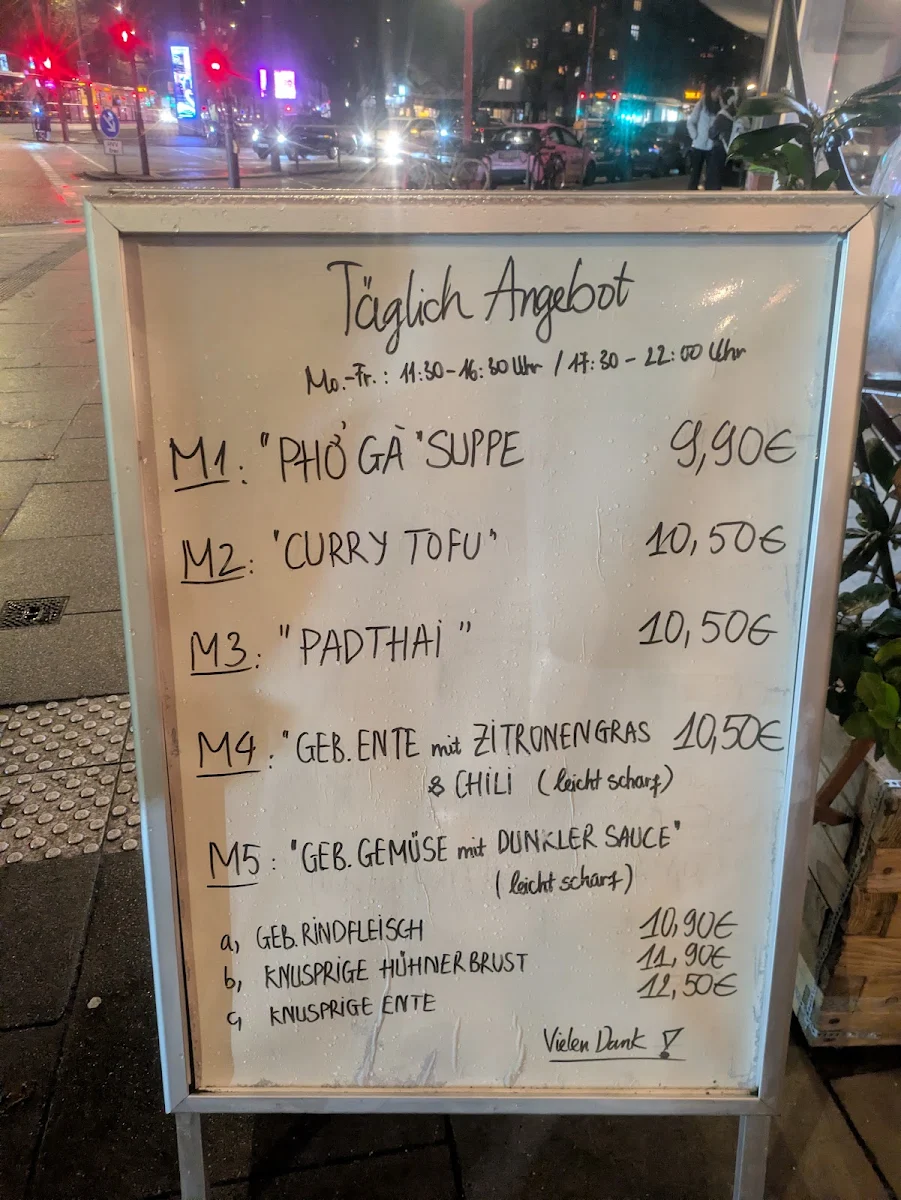 Täglich Angebot
Mo.-Fr.: 11:30-16:30 Uhr / 17:30-22:00 Uhr
M1: "PHỞ GÀ" SUPPE 9,90€
M2: "CURRY TOFU" 10,50€
M3: "PADTHAI" 10,50€
M4: "GEB. ENTE mit ZITRONENGRAS 10,50€
& CHILI (leicht scharf)
M5: "GEB. GEMÜSE mit DUNKLER SAUCE"
(leicht scharf)
a, GEB. RINDFLEISCH 10,90€
b, KNUSPRIGE HÜHNERBRUST 11,90€
c, KNUSPRIGE ENTE 12,50€
Vielen Dank !